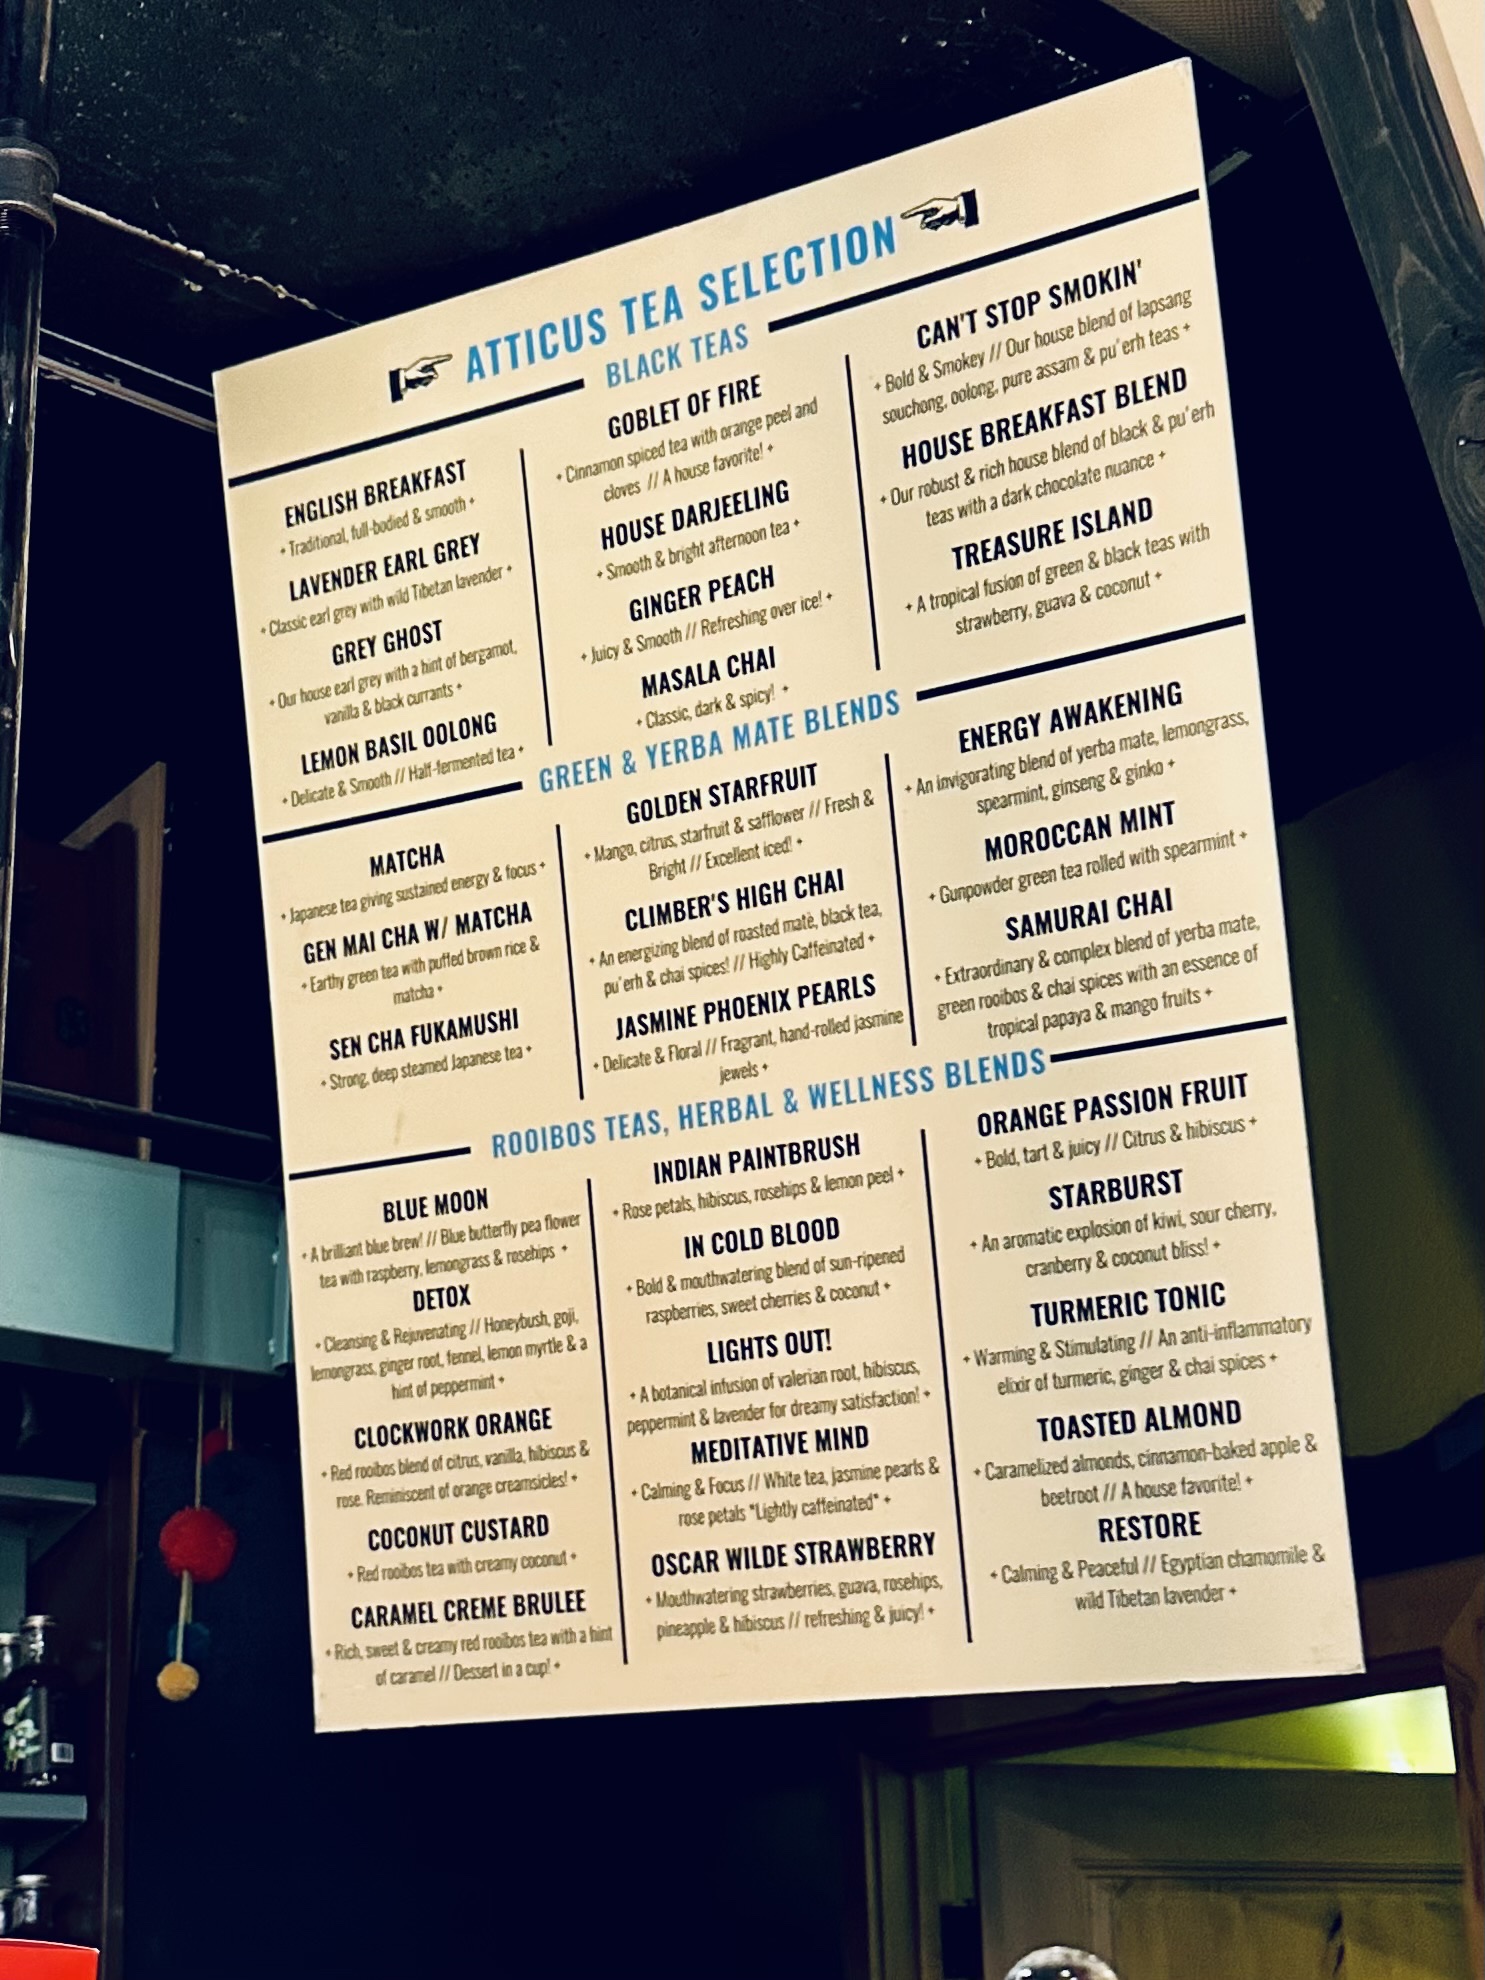 ATTICUS TEA SELECTION
BLACK TEAS
ENGLISH BREAKFAST
+ Traditional, full-bodied & smooth +
LAVENDER EARL GREY
+ Classic earl grey with wild Tibetan lavender +
GREY GHOST
+ Our house earl grey with a hint of bergamot,
vanilla & black currants +
LEMON BASIL OOLONG
+ Delicate & Smooth // Half-fermented tea +
GOBLET OF FIRE
+ Cinnamon spiced tea with orange peel and
cloves // A house favorite! +
HOUSE DARJEELING
+ Smooth & bright afternoon tea +
GINGER PEACH
+ Juicy & Smooth // Refreshing over ice! +
MASALA CHAI
+ Classic, dark & spicy! +
CAN'T STOP SMOKIN'
+ Bold & Smokey // Our house blend of lapsang
souchong, oolong, pure assam & pu'erh teas +
HOUSE BREAKFAST BLEND
+ Our robust & rich house blend of black & pu'erh
teas with a dark chocolate nuance +
TREASURE ISLAND
+ A tropical fusion of green & black teas with
strawberry, guava & coconut +
GREEN & YERBA MATE BLENDS
MATCHA
+ Japanese tea giving sustained energy & focus +
GEN MAI CHA W/ MATCHA
+ Earthy green tea with puffed brown rice &
matcha +
SEN CHA FUKAMUSHI
+ Strong, deep steamed Japanese tea +
GOLDEN STARFRUIT
+ Mango, citrus, starfruit & safflower // Fresh &
Bright // Excellent iced! +
CLIMBER'S HIGH CHAI
+ An energizing blend of roasted matè, black tea,
pu'erh & chai spices! // Highly Caffeinated +
JASMINE PHOENIX PEARLS
+ Delicate & Floral // Fragrant, hand-rolled jasmine
jewels +
ENERGY AWAKENING
+ An invigorating blend of yerba mate, lemongrass,
spearmint, ginseng & ginko +
MOROCCAN MINT
+ Gunpowder green tea rolled with spearmint +
SAMURAI CHAI
+ Extraordinary & complex blend of yerba mate,
green rooibos & chai spices with an essence of
tropical papaya & mango fruits +
ROOIBOS TEAS, HERBAL & WELLNESS BLENDS
BLUE MOON
+ A brilliant blue brew! // Blue butterfly pea flower
tea with raspberry, lemongrass & rosehips +
DETOX
+ Cleansing & Rejuvenating // Honeybush, goji,
lemongrass, ginger root, fennel, lemon myrtle & a
hint of peppermint +
CLOCKWORK ORANGE
+ Red rooibos blend of citrus, vanilla, hibiscus &
rose. Reminiscent of orange creamsicles! +
COCONUT CUSTARD
+ Red rooibos tea with creamy coconut +
CARAMEL CREME BRULEE
+ Rich, sweet & creamy red rooibos tea with a hint
of caramel // Dessert in a cup! +
INDIAN PAINTBRUSH
+ Rose petals, hibiscus, rosehips & lemon peel +
IN COLD BLOOD
+ Bold & mouthwatering blend of sun-ripened
raspberries, sweet cherries & coconut +
LIGHTS OUT!
+ A botanical infusion of valerian root, hibiscus,
peppermint & lavender for dreamy satisfaction! +
MEDITATIVE MIND
+ Calming & Focus // White tea, jasmine pearls &
rose petals "Lightly caffeinated" +
OSCAR WILDE STRAWBERRY
+ Mouthwatering strawberries, guava, rosehips,
pineapple & hibiscus // refreshing & juicy! +
ORANGE PASSION FRUIT
+ Bold, tart & juicy // Citrus & hibiscus +
STARBURST
+ An aromatic explosion of kiwi, sour cherry,
cranberry & coconut bliss! +
TURMERIC TONIC
+ Warming & Stimulating // An anti-inflammatory
elixir of turmeric, ginger & chai spices +
TOASTED ALMOND
+ Caramelized almonds, cinnamon-baked apple &
beetroot // A house favorite! +
RESTORE
+ Calming & Peaceful // Egyptian chamomile &
wild Tibetan lavender +